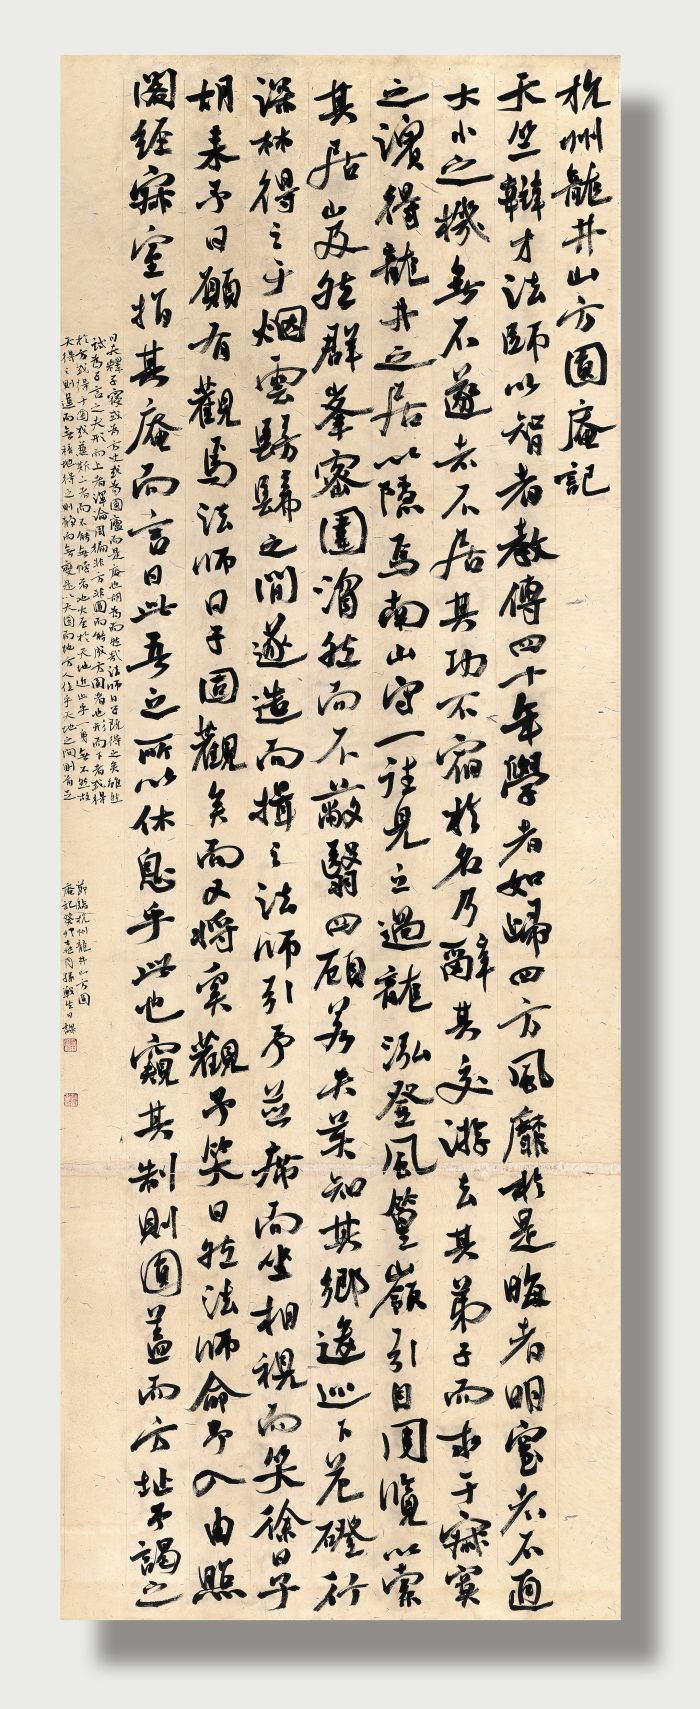 杭州龍井山方圓庵記
天竺辯才法師以智者教傳四十年學者如歸四方風靡於是晦者明窒者通
大小之機無不遂者不居其功不宿於名乃辭其交游去其弟子而求于寂寞
之濱得龍井之居以隱焉南山守一往見之過龍泓登風篁嶺引目周覽以索
其居岌然群峯密圍濟然而不蔽翳四顧若失莫知其鄉逡巡下危磴行
深林得之于烟雲髣髴之間遂造而揖之法師引予並席而坐相視而笑徐曰子
胡來予曰願有觀焉法師曰子固觀矣而又將奚觀予笑曰然法師命予入由照
閣經寂室指其庵而言曰此吾之所以休息乎此也窺其制則圓蓋而方址予謁之
曰夫釋子寢或為方丈或為圓廬而是庵也胡為而然哉法師曰子既得之矣雖然
試為子言之夫形而上者渾淪周徧非方非圓而能成方圓者也形而下者或得
於方或得于圓或兼斯二者而不能無悖者也大至於天地近止乎身無不然故
天得之則運而無積地得之則靜而無變是以天圓而地方人位乎天地之間則首足
節臨杭州龍井山方圓
庵記癸卯月孫生日課